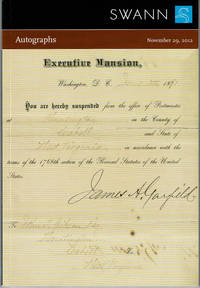 SWANN
Autographs
November 29, 2012
Executive Mansion,
Washington, D. C. 187
You are hereby suspended from the office of Postmaster
at Huntington in the County of
Cabell and State of
West Virginia in accordance with the
terms of the 1768th section of the Revised Statutes of the United
States.
James A. Garfield
To
Huntington
Cabell
West Virginia